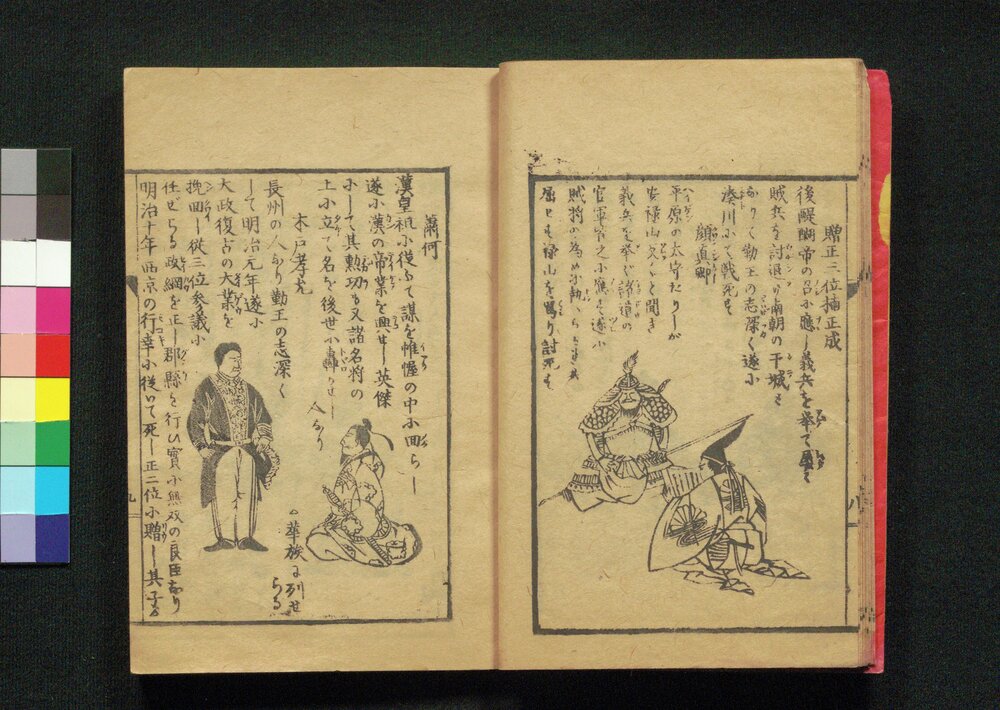 贈正三位楠正成
後醍醐帝の召小應し義兵を挙て屡々
賊兵を討退け南朝の干城と
なりく勤王の志深く遂小
湊川小て戦死す
顔真卿
平原の太守たりしが
安禄山欠くと聞き
義兵を挙げ諸道の
官軍官之小應じて遂小
賊将の為め小執へらるゝ共
屈せず禄山を罵り討死す
八
蕭何
漢皇祖小従ふて謀を帷幄の中小回らし
遂小漢の帝業を興せし英傑
小して其勲功も又諸名将の
上小立て名を後世小轟かせし
人なり
木戸孝允
長州の人なり勤王の志深く
して明治元年遂小
大政復古の大業を
挽回し従三位参議小
任ぜらる政綱を正し郡縣を行ひ實小無双の良臣なり
明治十年西京の行幸小従いて死し正二位小贈し其子を
華族に列せ
らる
九